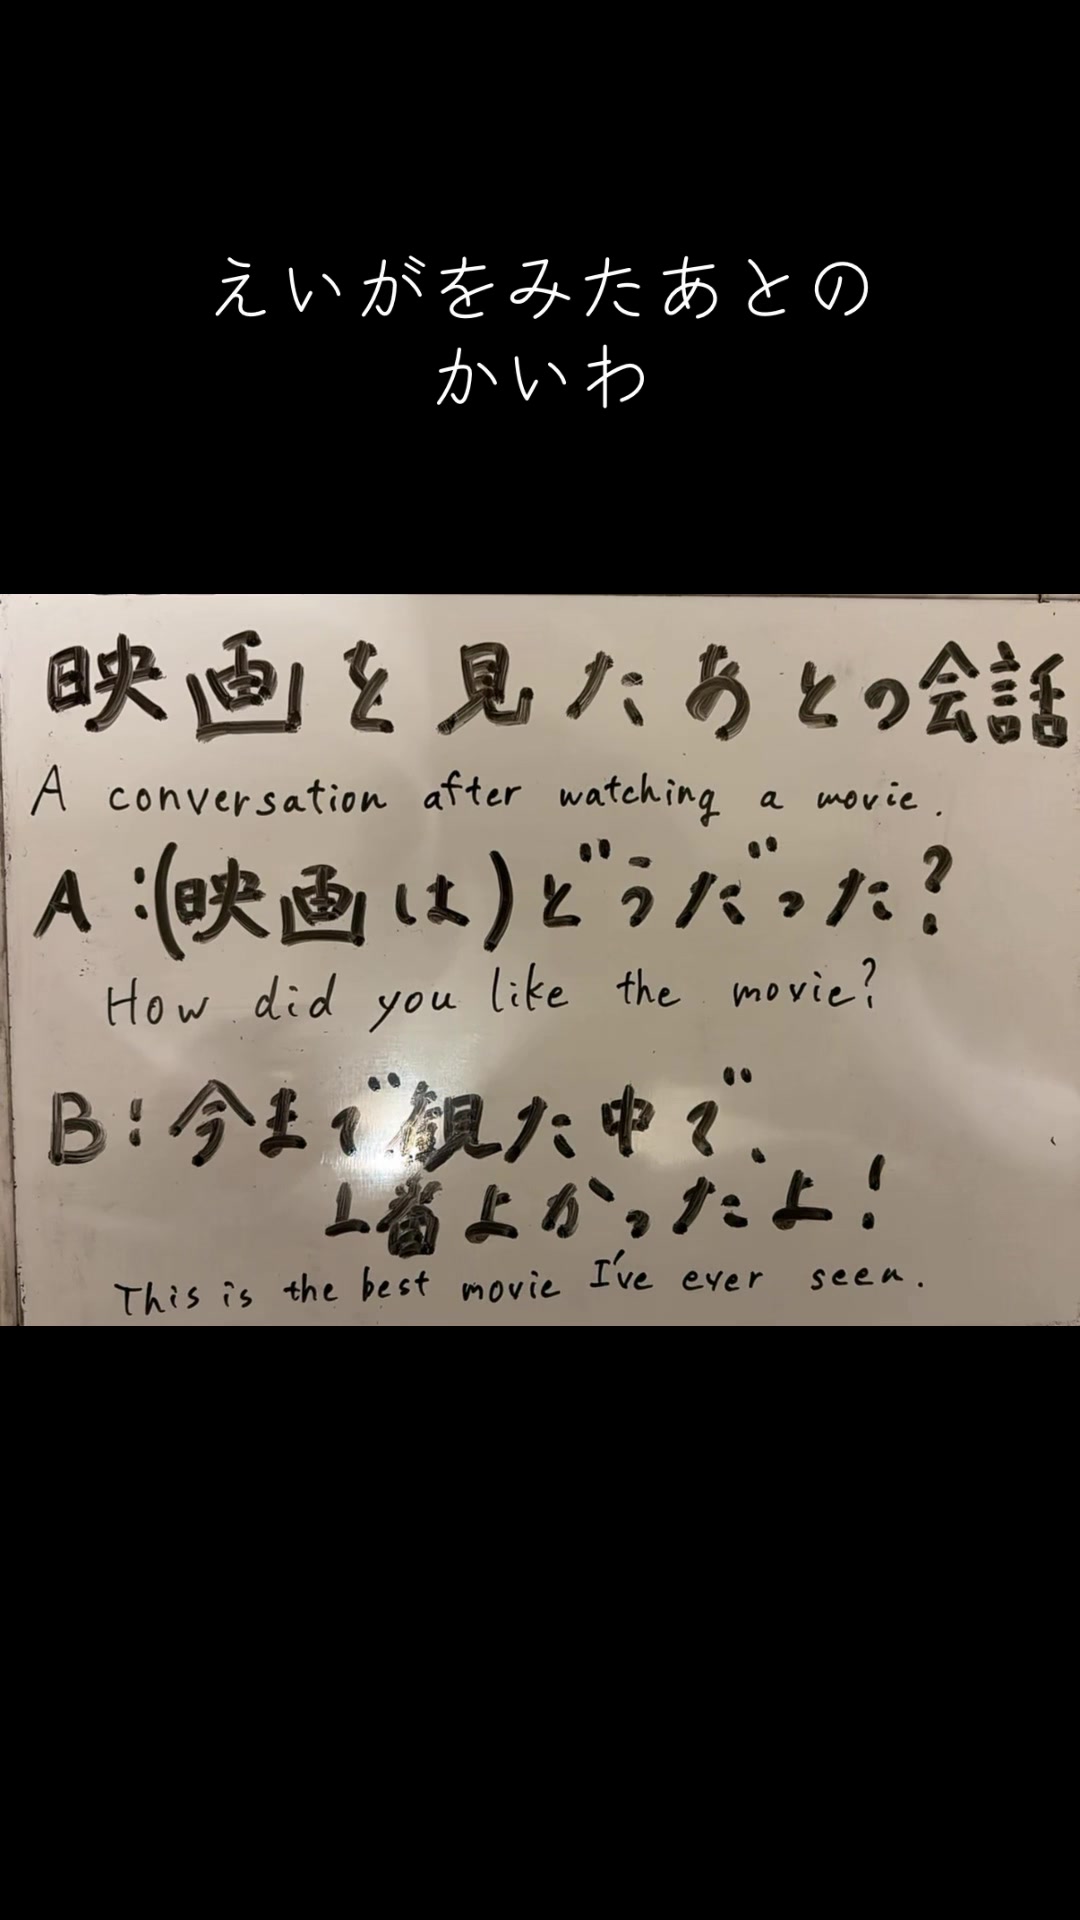 えいがをみたあとの
かいわ
映画を見たあとの会話
A conversation after watching a movie.
A:(映画は)どうだった?
How did you like the movie?
B:今まで観た中で、
1番よかったよ!
This is the best movie I've ever seen.